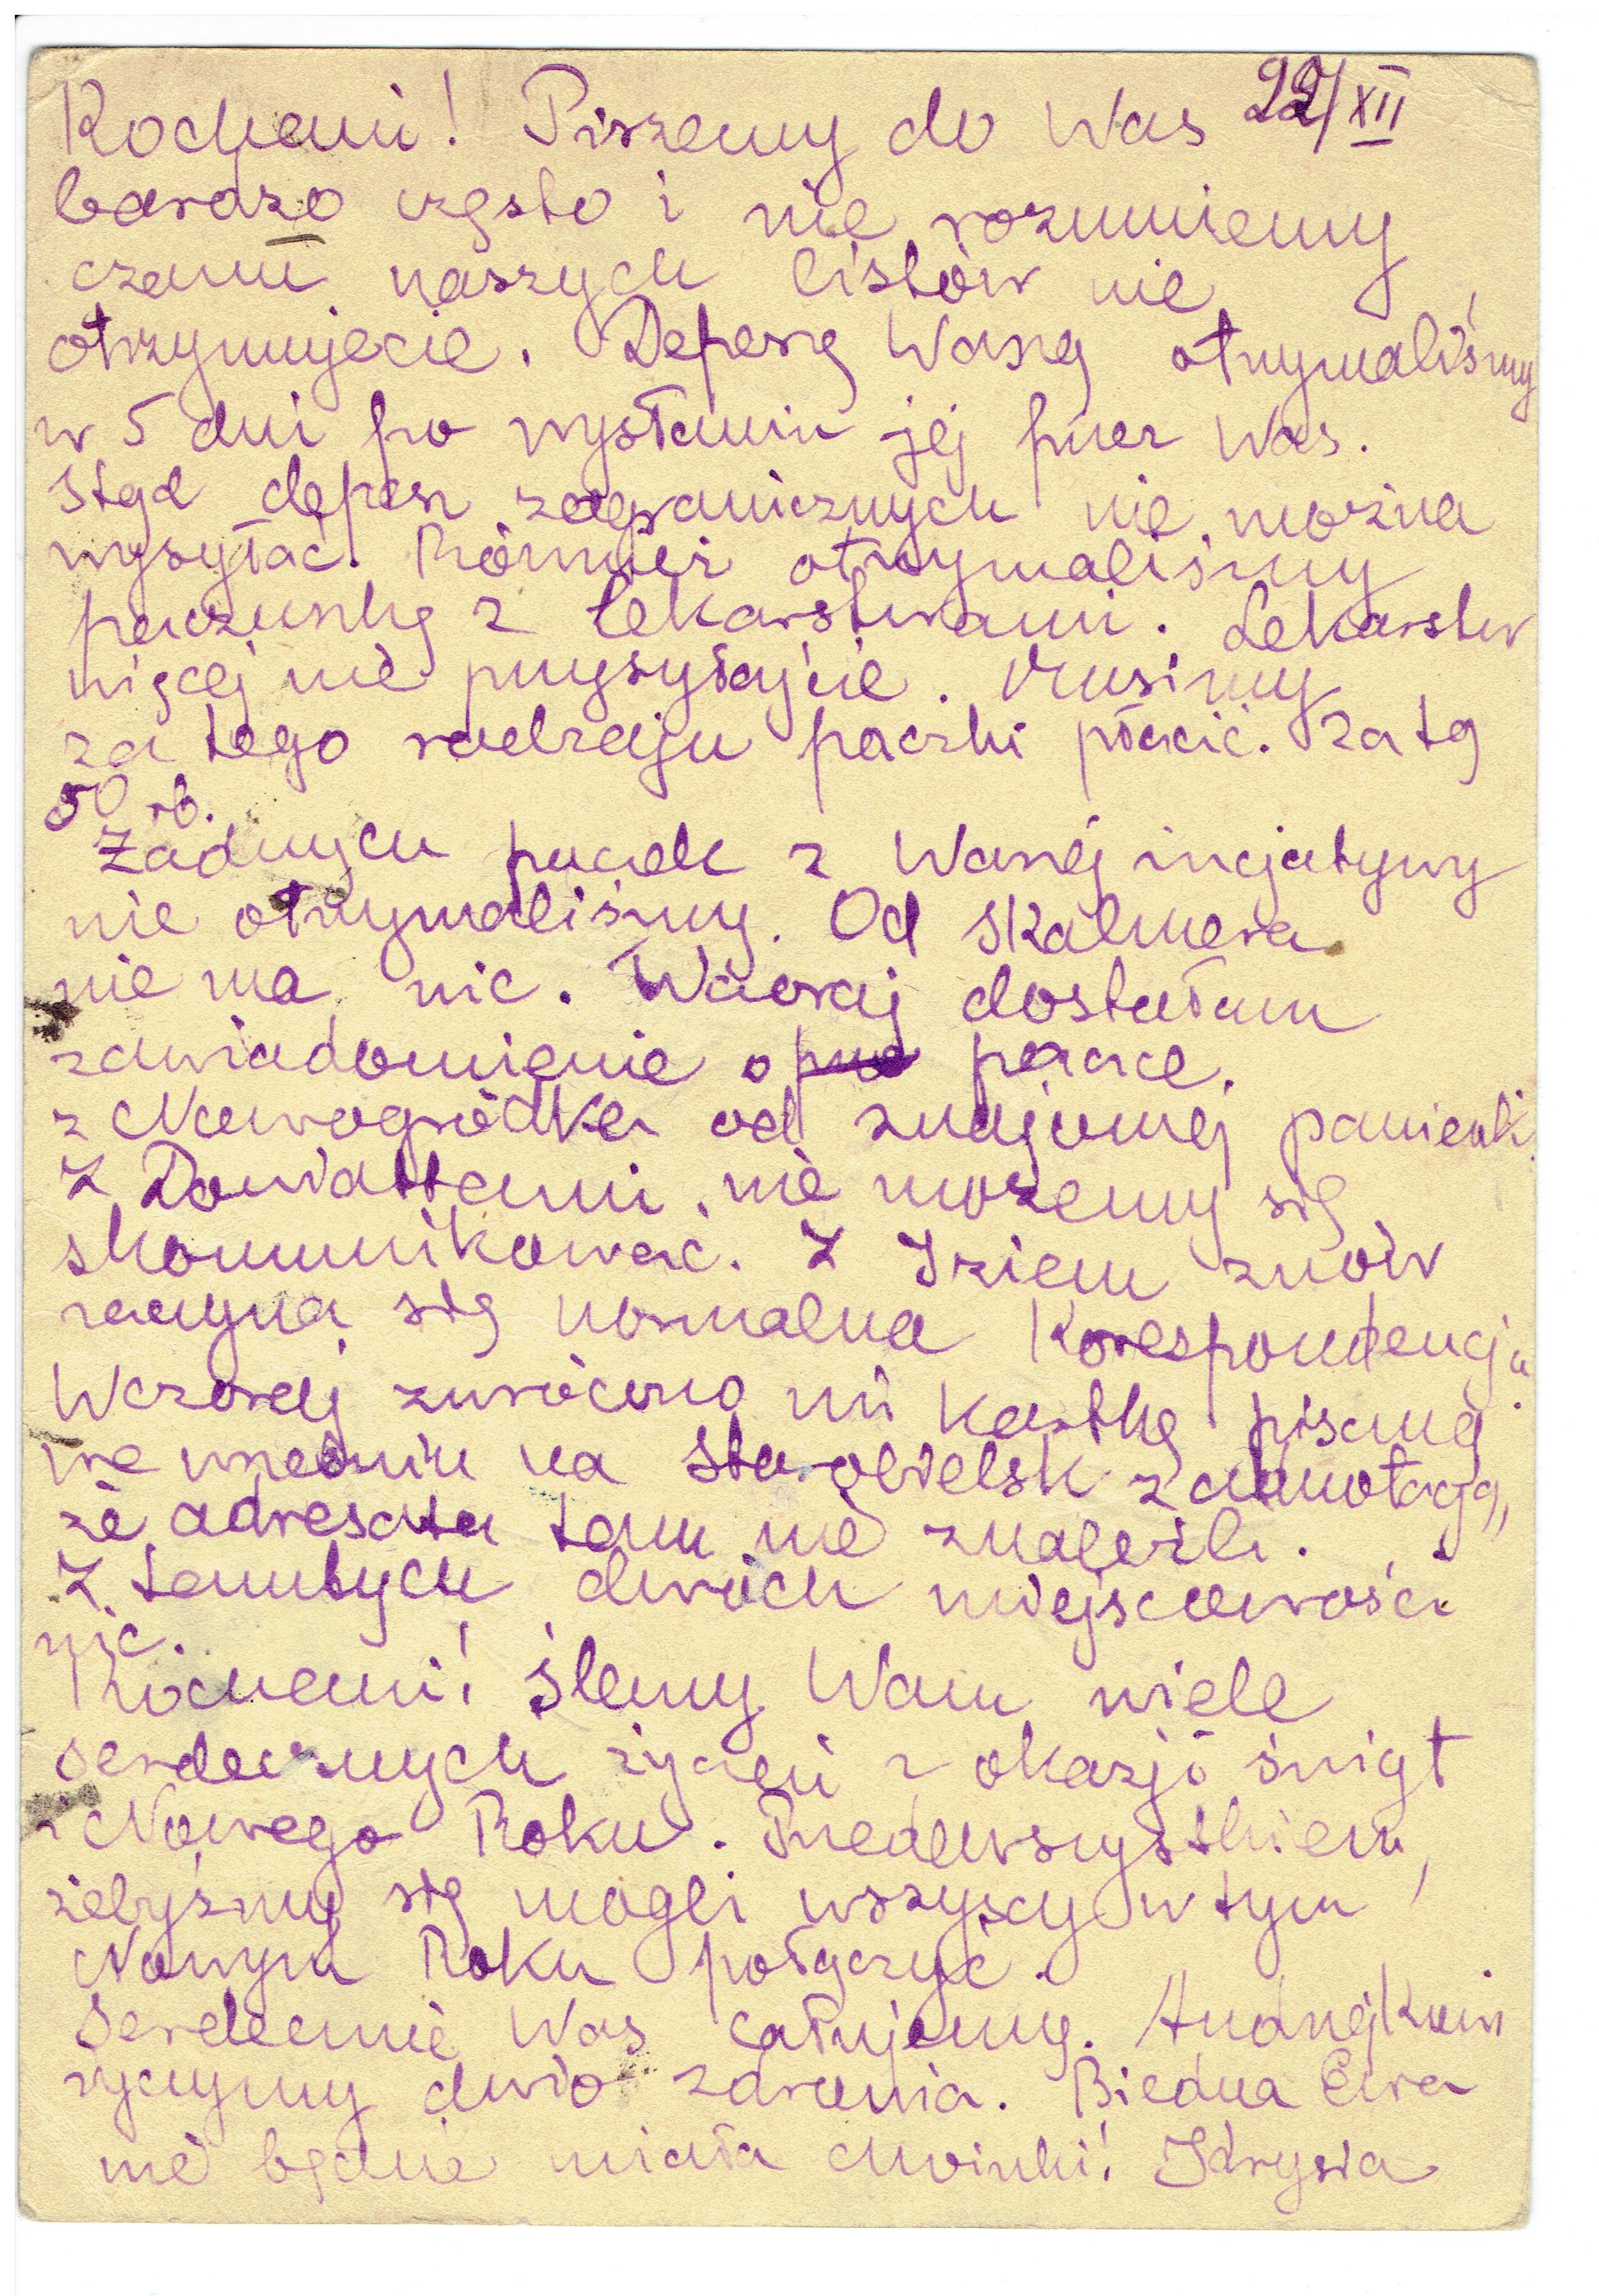 Kochani! Piszemy do Was 22/XII
bardzo często i nie rozumiemy
czemu naszych listów nie
otrzymujecie. Depeszę Waszą otrzymaliśmy
w 5 dni po wysłaniu jej przez Was.
Stąd depesz zagranicznych nie można
wysyłać. Również otrzymaliśmy
paczuszkę z lekarstwami. Lekarstw
więcej nie przysyłajcie. Musimy
za tego rodzaju paczki płacić. Za tę
50 rb.
Żadnych paczek z Waszej incjatywy
nie otrzymaliśmy. Od Skalmera
nie ma nic. Wczoraj dostałam
zawiadomienie o paczce
z Nowogródka od znajomej panienki.
Z Dowiattami nie możemy się
skomunikować. Z Iziem znów
zaczyna się normalna Korespondencja.
Wczoraj zwrócono mi kartkę pisaną
we wrześniu na Starobielsk z adnotacją,
że adresata tam nie znaleźli.
Z tamtych dwóch miejscowości
nic.
Kochani! Ślemy Wam wiele
serdecznych życzeń z okazji świąt
i Nowego Roku. Przedewszystkiem,
żebyśmy się mogli wszyscy w tym
Nowym Roku połączyć.
Serdecznie Was całujemy. Andrzejkowi
życzymy dużo zdrowia. Biedna Ewa
nie będzie miała choinki! Idrysia